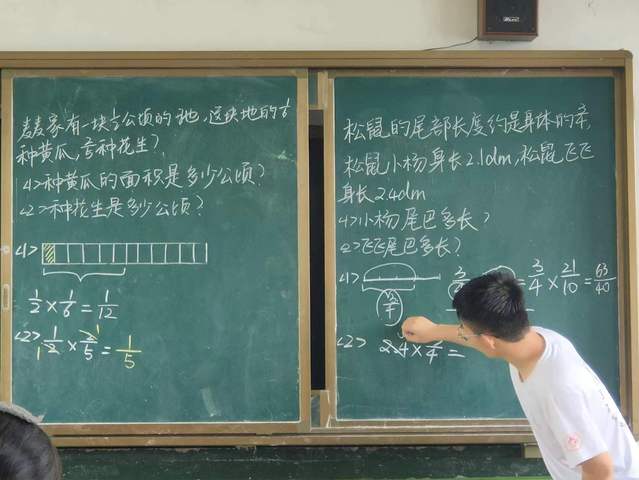 麦麦家有一块½公顷的地,这块地的
种黄瓜,种花生?
<1>种黄瓜的面积是多少公顷?
<2>种花生是多少公顷?
<1>
1/2×1/6=1/12
<2> 1/2×2/5=1/5
松鼠的尾部长度约是身体的
松鼠小杨身长2.1dm,松鼠飞飞
身长2.4dm
<1>小杨尾巴多长?
<2>飞飞尾巴多长?
<1> =3/4×21/10=63/40
<2> 2.4× =